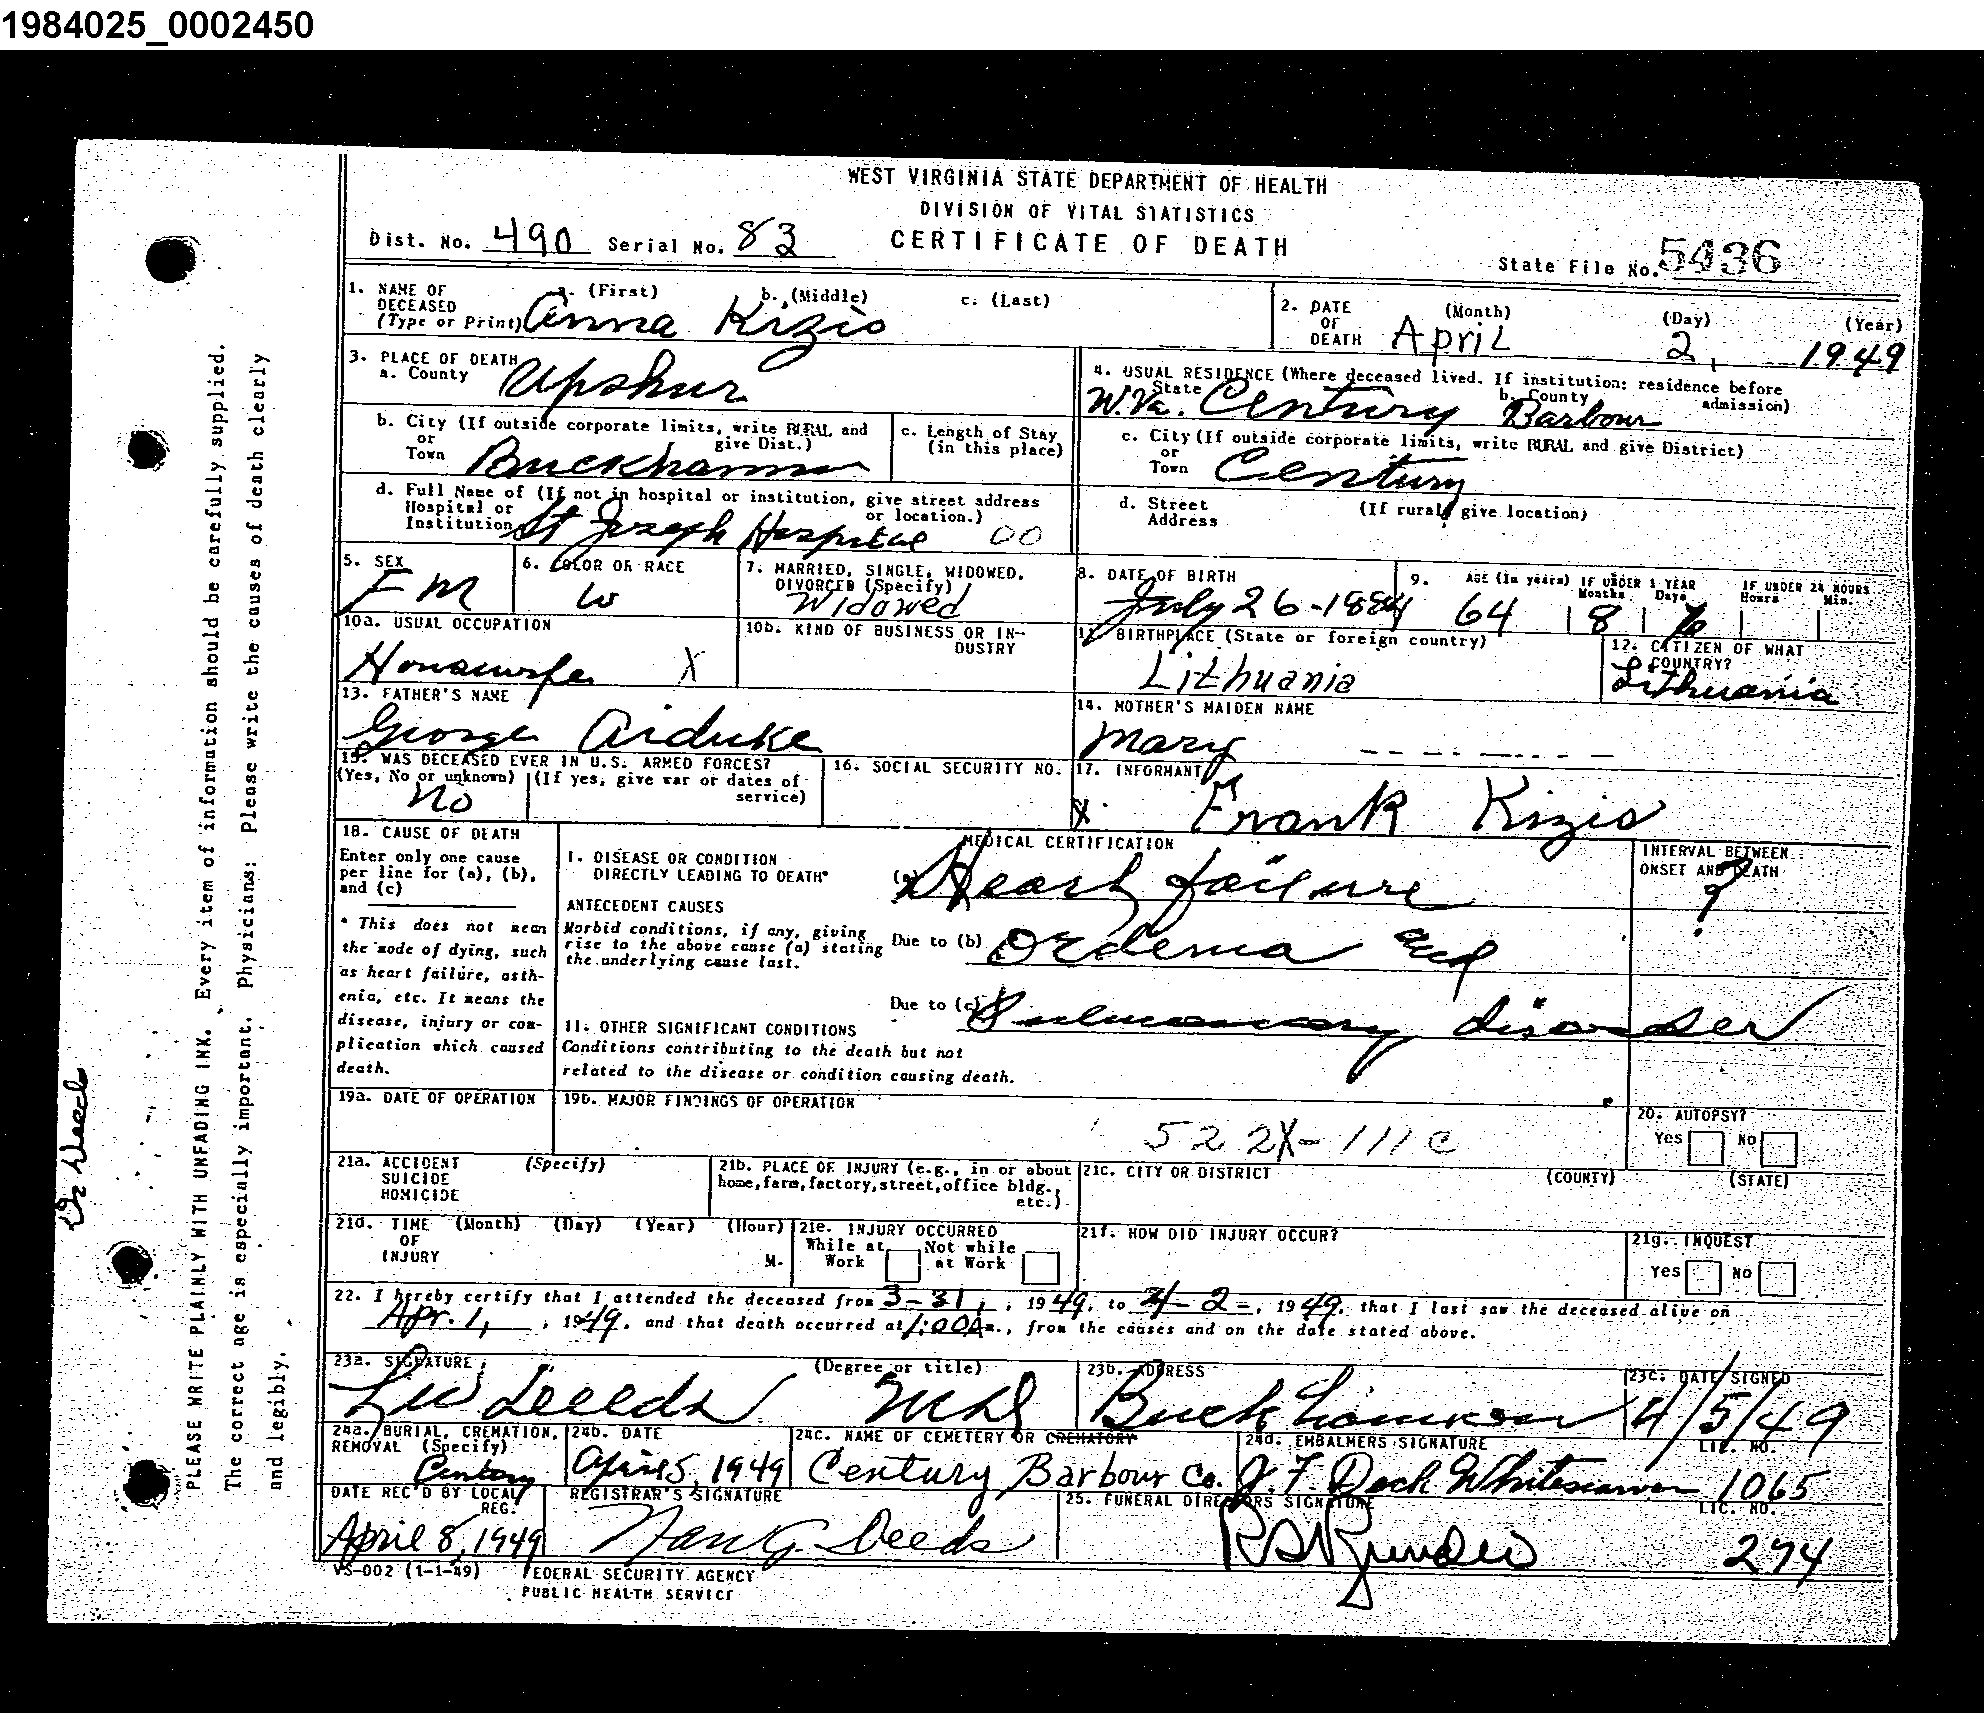 1984025_0002450
WEST VIRGINIA STATE DEPARTMENT OF HEALTH
DIVISION OF VITAL STATISTICS
Dist. No. 490 Serial No. 83 CERTIFICATE OF DEATH
State File No. 5436
1. NAME OF DECEASED (Type or Print) a. (First) b. (Middle) c. (Last)
Anna Kizio
2. DATE OF DEATH (Month) (Day) (Year)
April 2, 1949
3. PLACE OF DEATH
a. County Upshur
4. USUAL RESIDENCE (Where deceased lived. If institution: residence before admission)
State b. County
W.Va. Century Barbour
b. City (If outside corporate limits, write RURAL and give Dist.)
or Town Buckhannon
c. Length of Stay (in this place)
c. City (If outside corporate limits, write RURAL and give District)
or Town Century
d. Full Name of (If not in hospital or institution, give street address or location.)
Hospital or Institution St Joseph Hospital 00
d. Street Address (If rural give location)
5. SEX
F M
6. COLOR OR RACE
W
7. MARRIED, SINGLE, WIDOWED, DIVORCED (Specify)
Widowed
8. DATE OF BIRTH
July 26-1884
9. AGE (In years) IF UNDER 1 YEAR Months Days IF UNDER 24 HOURS Hours Min.
64 8
10a. USUAL OCCUPATION
Housewife X
10b. KIND OF BUSINESS OR INDUSTRY
11. BIRTHPLACE (State or foreign country)
Lithuania
12. CITIZEN OF WHAT COUNTRY?
Lithuania
13. FATHER'S NAME
George Aiduke
14. MOTHER'S MAIDEN NAME
Mary
15. WAS DECEASED EVER IN U.S. ARMED FORCES?
(Yes, No or unknown) (If yes, give war or dates of service)
No
16. SOCIAL SECURITY NO.
17. INFORMANT
X Frank Kizio
18. CAUSE OF DEATH
Enter only one cause per line for (a), (b), and (c)
* This does not mean the mode of dying, such as heart failure, asthenia, etc. It means the disease, injury or complication which caused death.
MEDICAL CERTIFICATION
I. DISEASE OR CONDITION DIRECTLY LEADING TO DEATH*
(a) Heart failure
INTERVAL BETWEEN ONSET AND DEATH
?
ANTECEDENT CAUSES
Morbid conditions, if any, giving rise to the above cause (a) stating the underlying cause last.
Due to (b) Oedema and
Due to (c) Pulmonary disorder
11. OTHER SIGNIFICANT CONDITIONS
Conditions contributing to the death but not related to the disease or condition causing death.
19a. DATE OF OPERATION
19b. MAJOR FINDINGS OF OPERATION
522X-111c
20. AUTOPSY?
Yes No
21a. ACCIDENT SUICIDE HOMICIDE (Specify)
21b. PLACE OF INJURY (e.g., in or about home, farm, factory, street, office bldg., etc.)
21c. CITY OR DISTRICT (COUNTY) (STATE)
21d. TIME OF INJURY (Month) (Day) (Year) (Hour) M.
21e. INJURY OCCURRED
While at Work Not while at Work
21f. HOW DID INJURY OCCUR?
21g. INQUEST
Yes No
22. I hereby certify that I attended the deceased from 3-31, , 1949, to 4-2-, 1949, that I last saw the deceased alive on
Apr. 1, , 1949, and that death occurred at 1:00A m., from the causes and on the date stated above.
23a. SIGNATURE (Degree or title)
Deeds MD
23b. ADDRESS
Buckhannon
23c. DATE SIGNED
4/5/49
24a. BURIAL, CREMATION, REMOVAL (Specify)
Century
24b. DATE
April 5, 1949
24c. NAME OF CEMETERY OR CREMATORY
Century Barbour Co.
24d. EMBALMERS SIGNATURE LIC. NO.
J. F. 1065
DATE REC'D BY LOCAL REG.
April 8, 1949
REGISTRAR'S SIGNATURE
Nan G. Deeds
25. FUNERAL DIRECTORS SIGNATURE LIC. NO.
274
VS-002 (1-1-49) FEDERAL SECURITY AGENCY
PUBLIC HEALTH SERVICE
PLEASE WRITE PLAINLY WITH UNFADING INK. Every item of information should be carefully supplied.
The correct age is especially important. Physicians: Please write the causes of death clearly
and legibly.
Dr Deeds